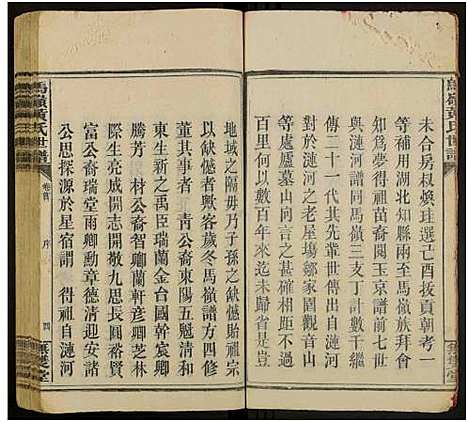 馬嶺黃氏世譜
未合房叔燠珪選己酉拔貢朝考一
等後用湖北知縣兩至馬嶺拜會始
知為夢得祖苗裔閱玉京譜前七世
與漣河譜同馬嶺三支丁計數千繼
傳二十一代其先輩世傳由漣河出
對於漣河之老屋塲鄒家園觀音山
等處盧墓言之甚確相距不過
百里何以數百年來未歸省是豈
地域之隔毋乃子孫之缺憾貽祖宗
以缺憾者歟客歲冬馬嶺譜方四修
董其事者 先公裔東陽五魁清和
東生新之禹臣瑞蘭金台國幹宸卿
騰芳 材公裔智卿蘭軒彥卿芝林
際生亮成開志開敬九思長圓裕賢
富公裔瑞堂雨卿勳章德清迎安諸
公思探源於星宿謂 得祖自漣河
馬嶺黃氏世譜
卷首
序
四
無雙堂
無雙堂